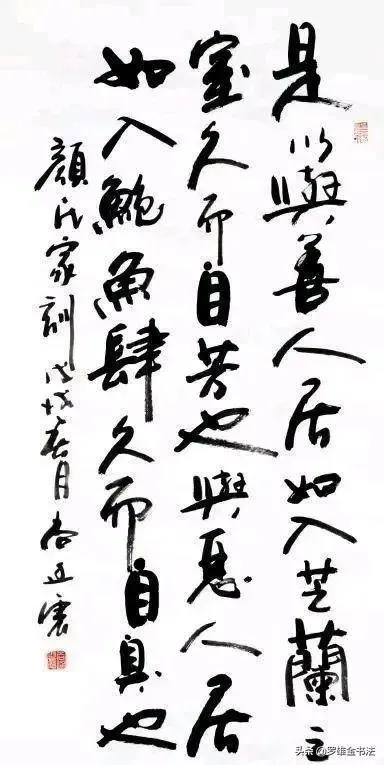 是以與善人居如入芝蘭之
室久而自芳也與惡人居
如入鮑魚肆久而自臭也
顏氏家訓戊戌春月
头条 @罗雄金书法